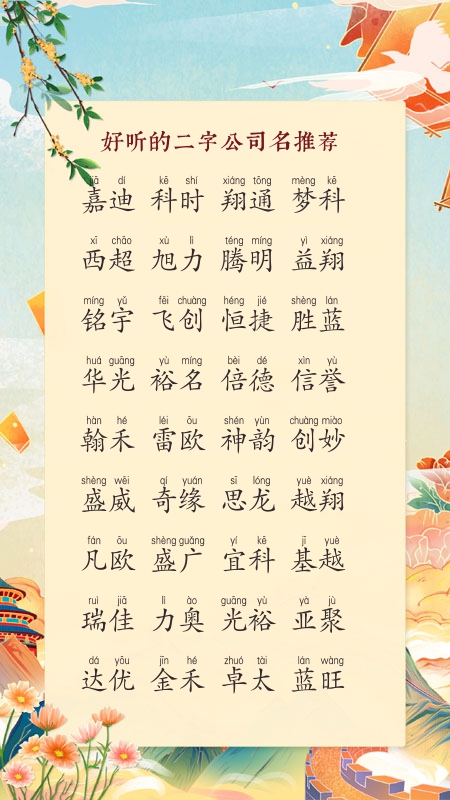 好听的二字公司名推荐
jiā dí kē shí xiáng tōng mèng kē
嘉迪 科时 翔通 梦科
xī chāo xù lì téng míng yì xiáng
西超 旭力 腾明 益翔
míng yǔ fēi chuàng héng jié shèng lán
铭宇 飞创 恒捷 胜蓝
huá guāng yù míng bèi dé xìn yù
华光 裕名 倍德 信誉
hàn hé léi ōu shén yùn chuàng miào
翰禾 雷欧 神韵 创妙
shèng wēi qí yuán sī lóng yuè xiáng
盛威 奇缘 思龙 越翔
fán ōu shèng guǎng yí kē jī yuè
凡欧 盛广 宜科 基越
ruì jiā lì ào guāng yù yà jù
瑞佳 力奥 光裕 亚聚
dá yōu jīn hé zhuó tài lán wàng
达优 金禾 卓太 蓝旺